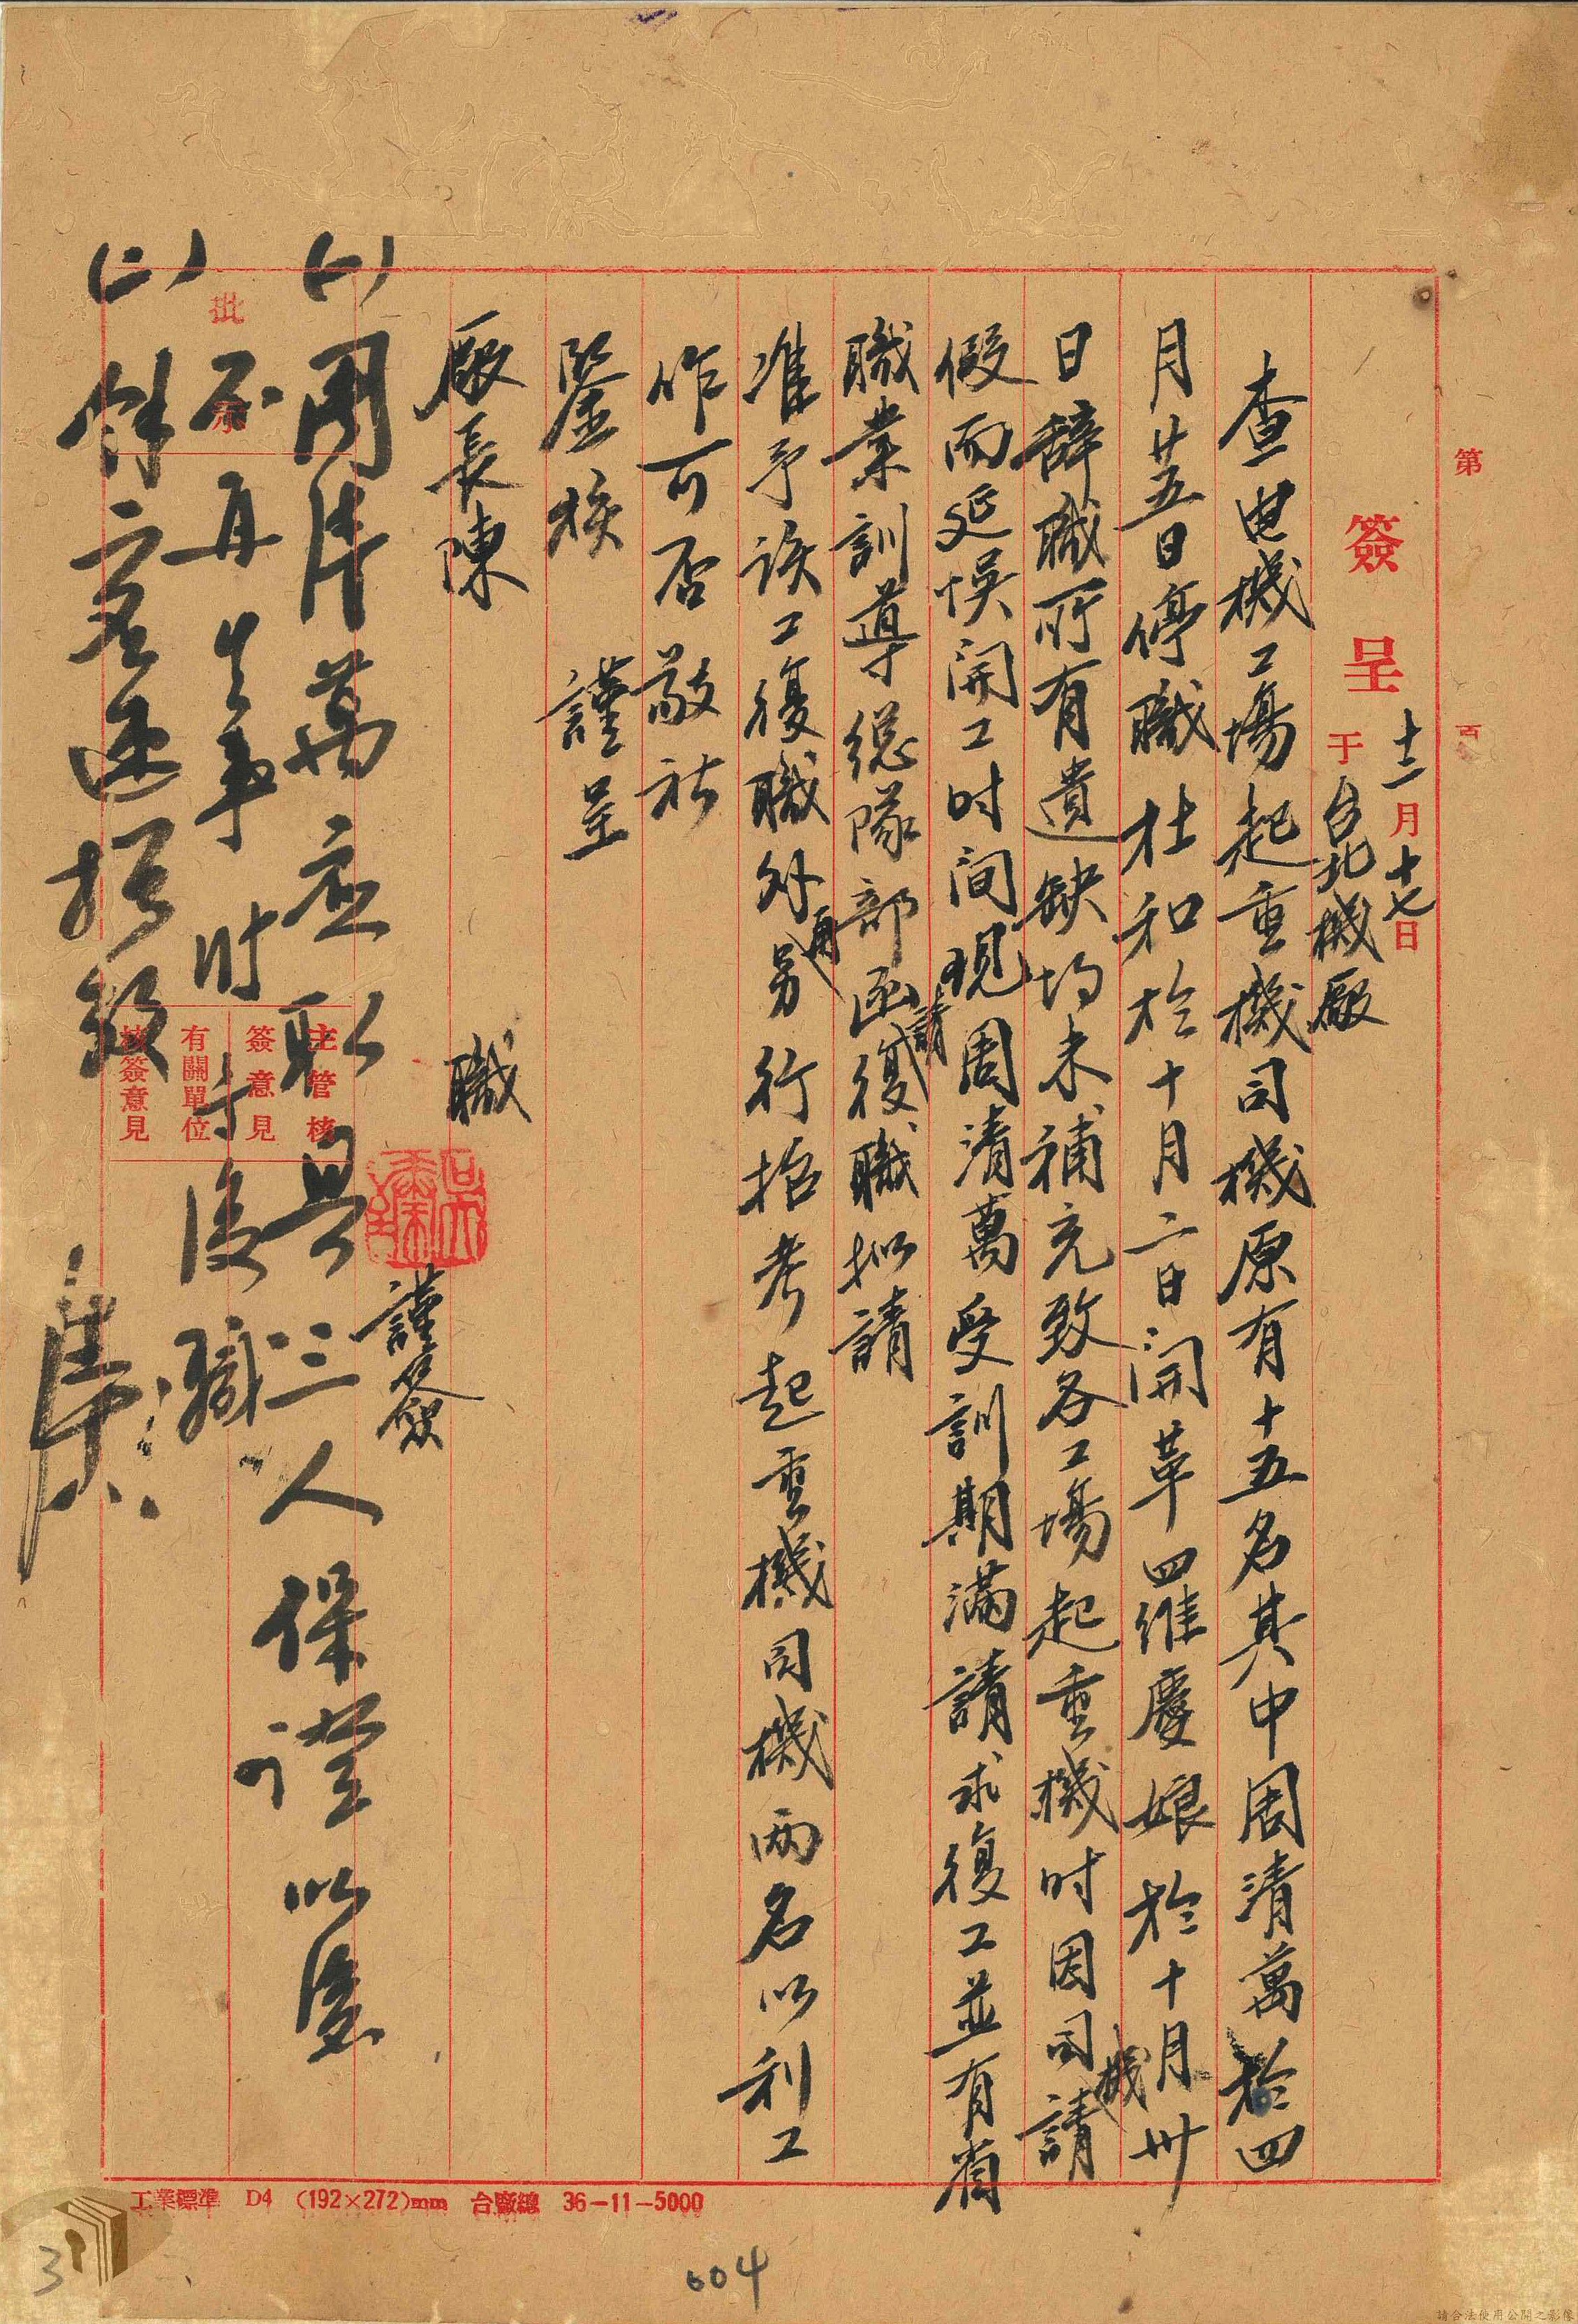 第
頁
簽呈
十二月十七日
于台北機廠
查电機工場起重機司機原有十五名其中周清萬於四
月廿五日停職杜和於十月二日開革四羅慶娘於十月卅
日辭職所有遺缺均未補充致各工場起重機时因司機請
假而延悞開工时间現周清萬受訓期滿請求復工並有省
職業訓導總隊部函請復職拟請
准予該工復職外再另行招考起重機司機两名以利工
作可否敬祈
鑒核 謹呈
廠長陳
職
謹簽
批示
主管核簽意見
有關單位核簽意見
(一)周清萬應取具三人保證以後
不再生事时方准復職
(二)餘二名迅招
工業標準 D4 (192×272)mm 台廠總 36-11-5000
604
3
請合法使用公開之影像